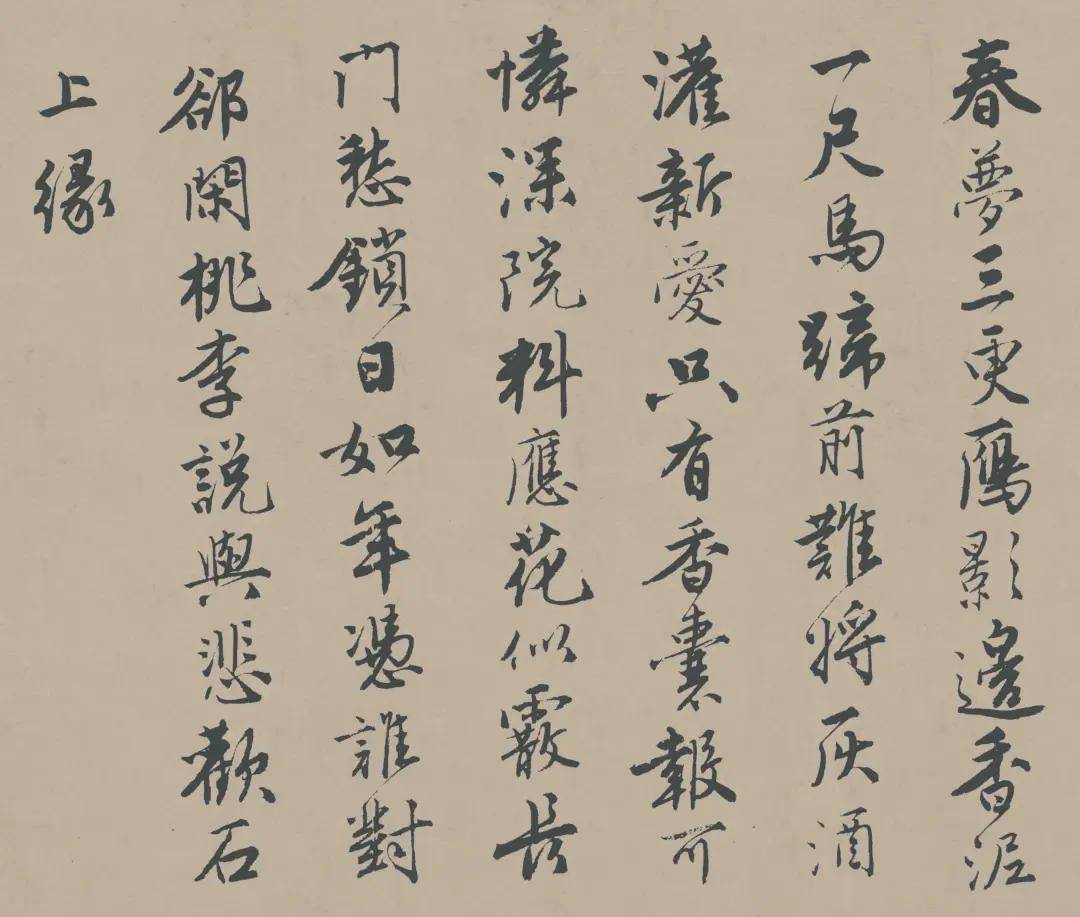 春夢三更鴈影邊香泥
一尺馬蹄前難將灰酒
灌新愛只有香囊報可
憐深院料應花似霰長
門愁鎖日如年憑誰對
卻閑桃李說與悲歡石
上緣